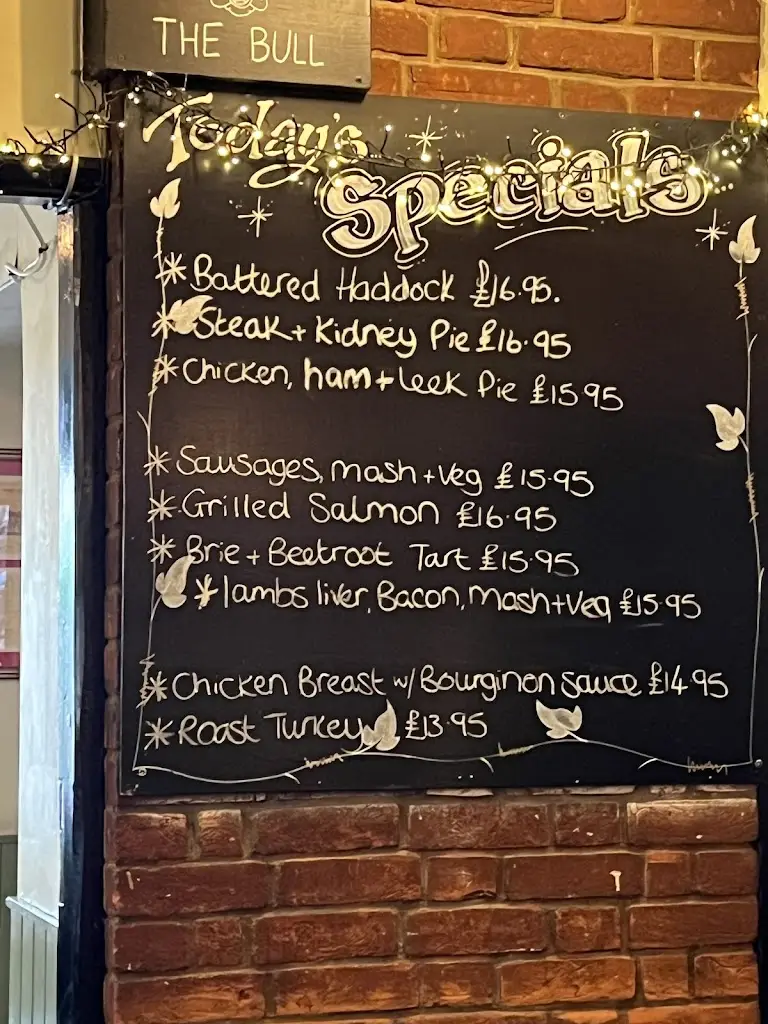 THE BULL
Today's
Specials
* Battered Haddock £16.95.
* Steak + Kidney Pie £16.95
* Chicken, ham + leek Pie £15.95
* Sausages, mash + Veg £15.95
* Grilled Salmon £16.95
* Brie + Beetroot Tart £15.95
* lambs liver, Bacon, mash + Veg £15.95
* Chicken Breast w/ Bourginon sauce £14.95
* Roast Turkey £13.95